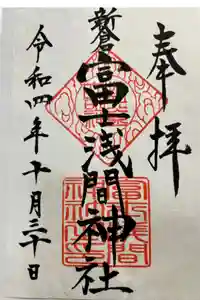 奉拝
新倉
富士浅間神社
令和四年十月三十日